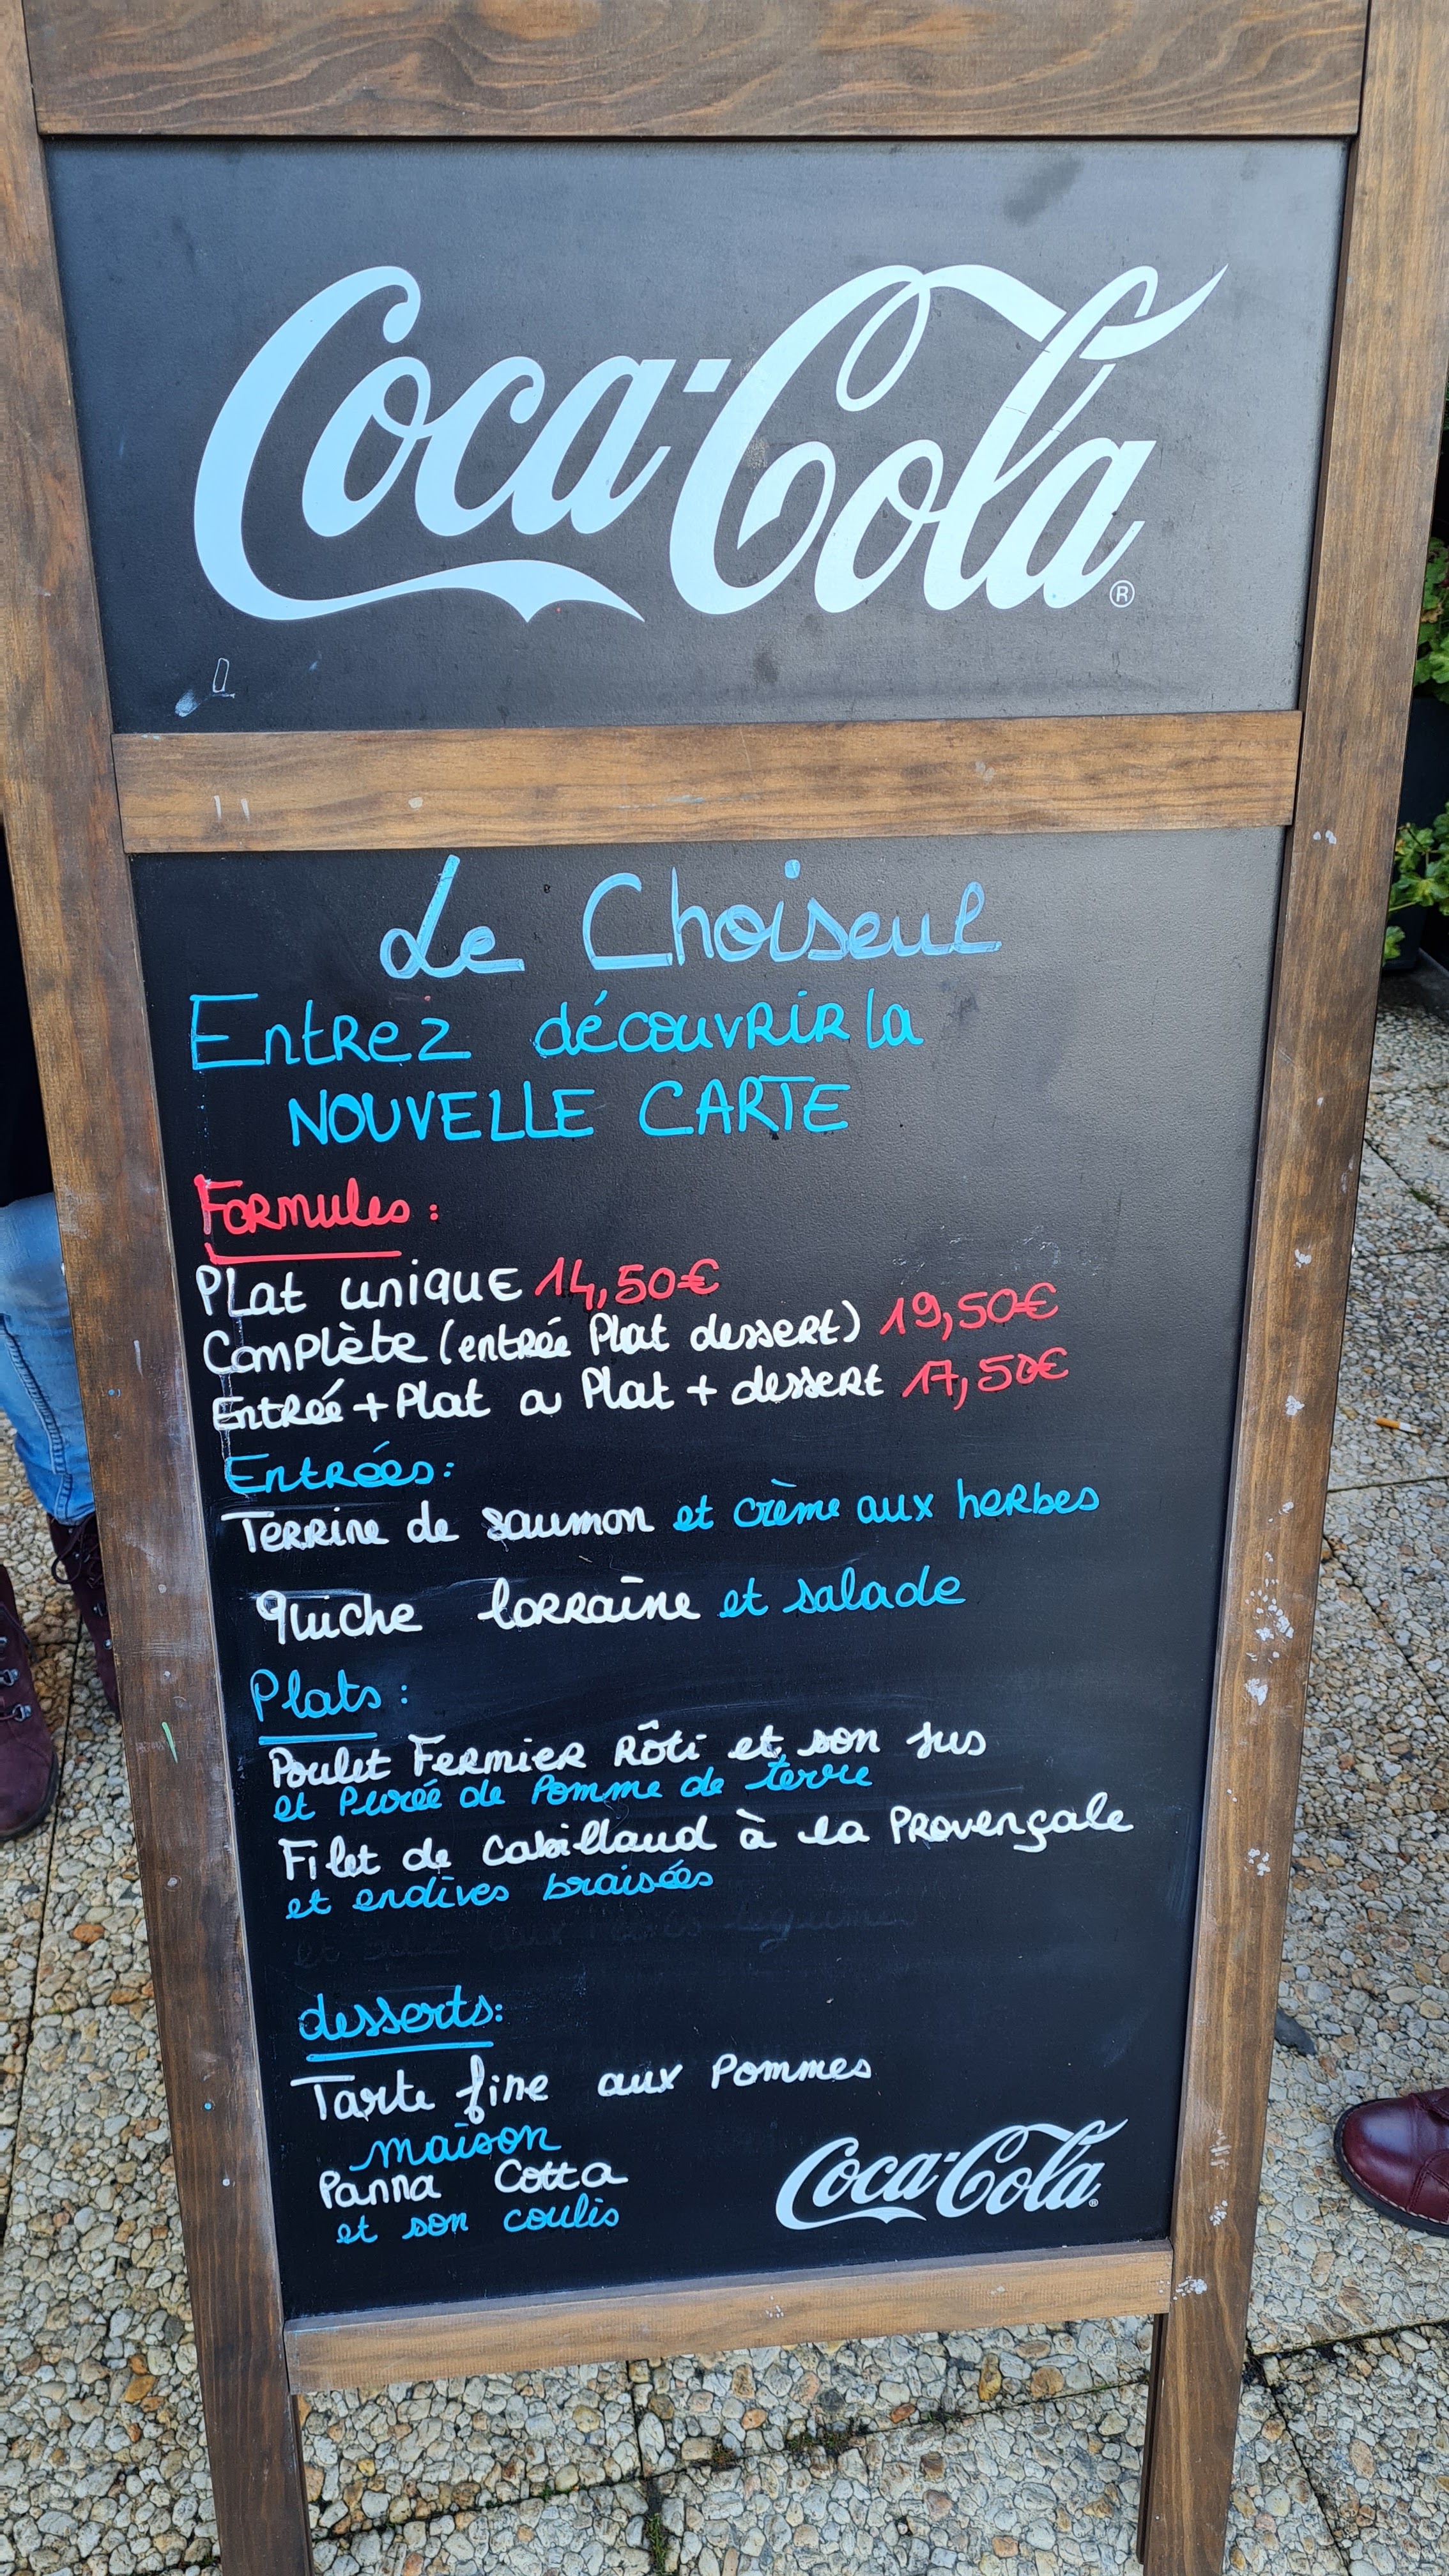 Coca-Cola®
Le Choiseul
Entrez découvrir la
NOUVELLE CARTE
Formules :
Plat unique 14,50€
Complète (entrée Plat dessert) 19,50€
Entrée + Plat ou Plat + dessert 17,50€
Entrées :
Terrine de saumon et crème aux herbes
quiche lorraine et salade
Plats :
Poulet Fermier Rôti et son jus
et Purée de Pomme de terre
Filet de Cabillaud à la Provençale
et endives braisées
desserts :
Tarte fine aux Pommes
maison
Panna Cotta
et son coulis
Coca-Cola®